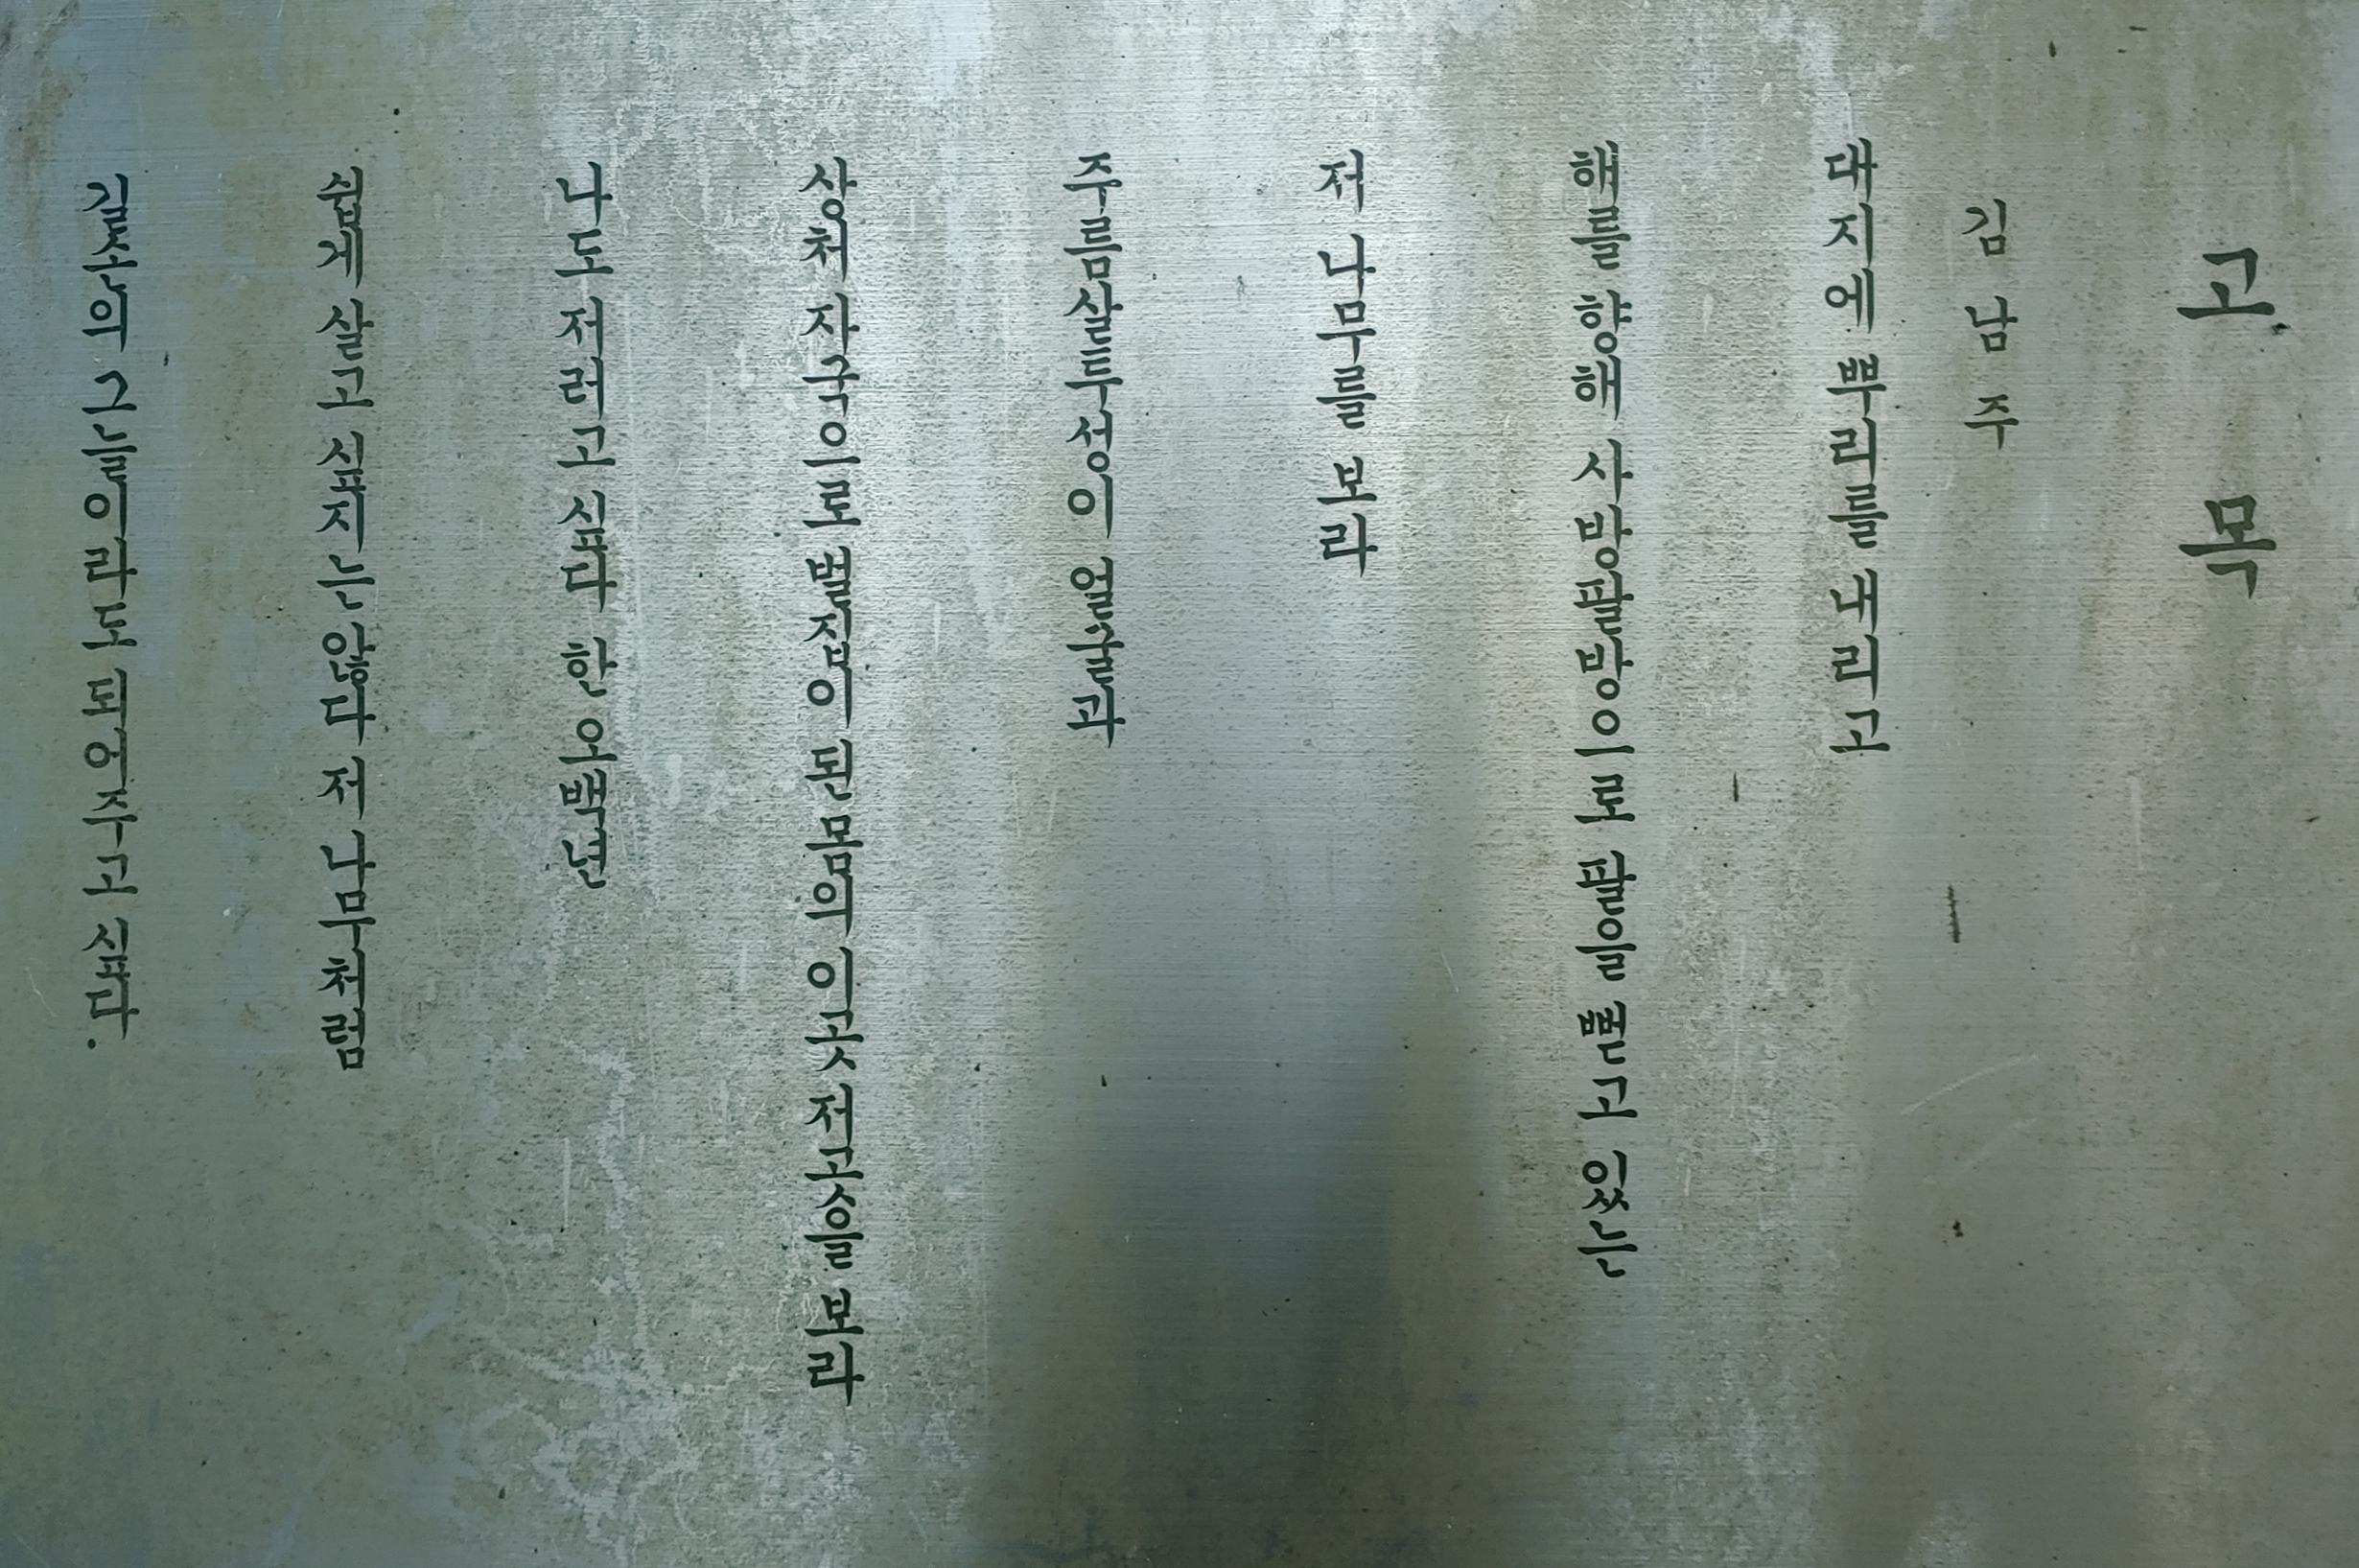 고 목
김 남 주
대지에 뿌리를 내리고
해를 향해 사방팔방으로 팔을 뻗고 있는
저 나무를 보라
주름살투성이 얼굴과
상처 자국으로 벌집이 된 몸의 이곳 저곳을 보라
나도 저러고 싶다 한 오백년
쉽게 살고 싶지는 않다 저 나무처럼
길손의 그늘이라도 되어주고 싶다.